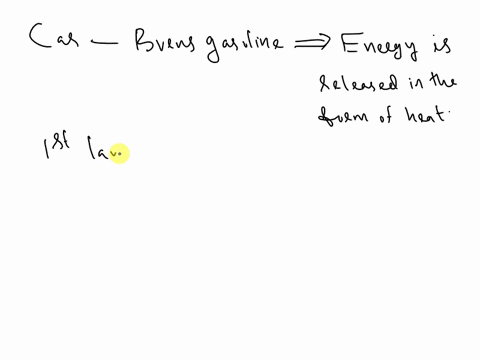 Car — Burns gasoline ⇒ Energy is
released in the
form of heat.
1st law